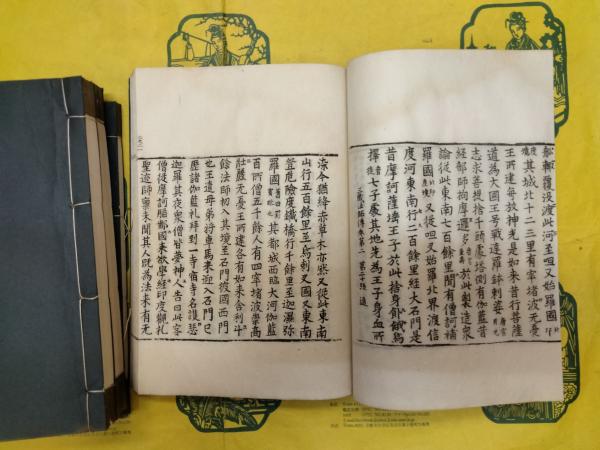 船輒覆沒渡此河至呾叉始羅國北印
度境其城北十二三里有窣堵波無憂
王所建每放神光是如來昔行菩薩
道為大國王号戰達羅鉢剌婆唐言月光
志求菩提捨千頭處塔側有伽藍昔
經部師拘摩邏多唐言童壽於此製造衆
論從此東南七百餘里間有僧訶補
羅國北印度境又從呾叉始羅北界渡信
度河東南行二百餘里經大石門是
昔摩訶薩埵王子於此捨身飼餓烏
擇音徒七子處其地先為王子身血所
三藏法師傳卷第二
染今猶絳赤草木亦然又從此東南
山行五百餘里至烏剌叉國又東南
登危險度鐵橋行千餘里至迦濕弥
羅國舊曰罽賓訛也其都城西臨大河伽藍
百所僧五千餘人有四窣堵波崇高
壯麗無憂王所建各有如來舍利斗
餘法師初入其境至石門彼國西門
也王遣母弟將車馬來迎入石門已
歷諸伽藍禮拜到一寺宿寺名護瑟
迦羅其夜衆僧皆夢神人告曰此客
僧從摩訶脂那國來欲學經印度觀礼
聖迹師稟未聞其人既為法來有無